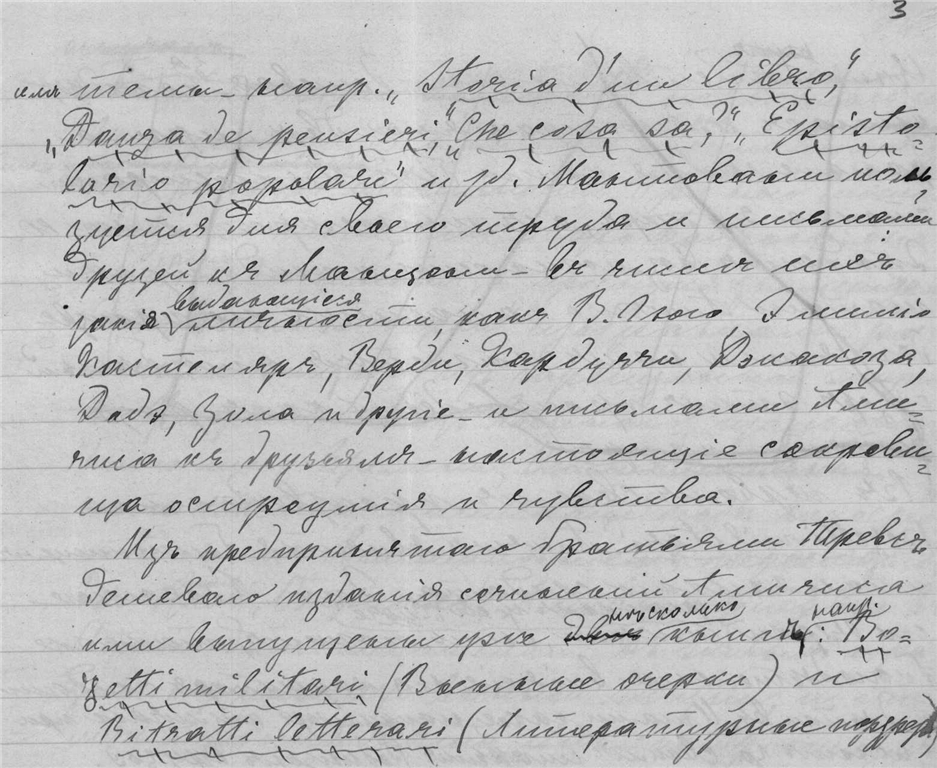 3
или темы – напр. „Storia d'un libro,“
„Danza de pensieri,“ „Che cosa sa,?“ „Episto-
lario popolare“ и др. Мантовани поль-
зуется для своего труда и письмами
друзей къ Манцони – въ числѣ ихъ
такія выдающіяся личности, какъ В. Гюго, Эмиліо
Кастеляръ, Верди, Кардуччи, Джакоза,
Додэ, Зола и другіе – и письмами Ами-
чиса къ друзьямъ – настоящіе сокрови-
ща остроумія и чувства.
Изъ предпринятаго братьями Тревсъ
дешеваго изданія сочиненій Амичиса
ими выпущены уже нѣсколько книгъ, напр.: Bo-
zetti militari (Военные очерки) и
Ritratti letterari (Литературные портреты)